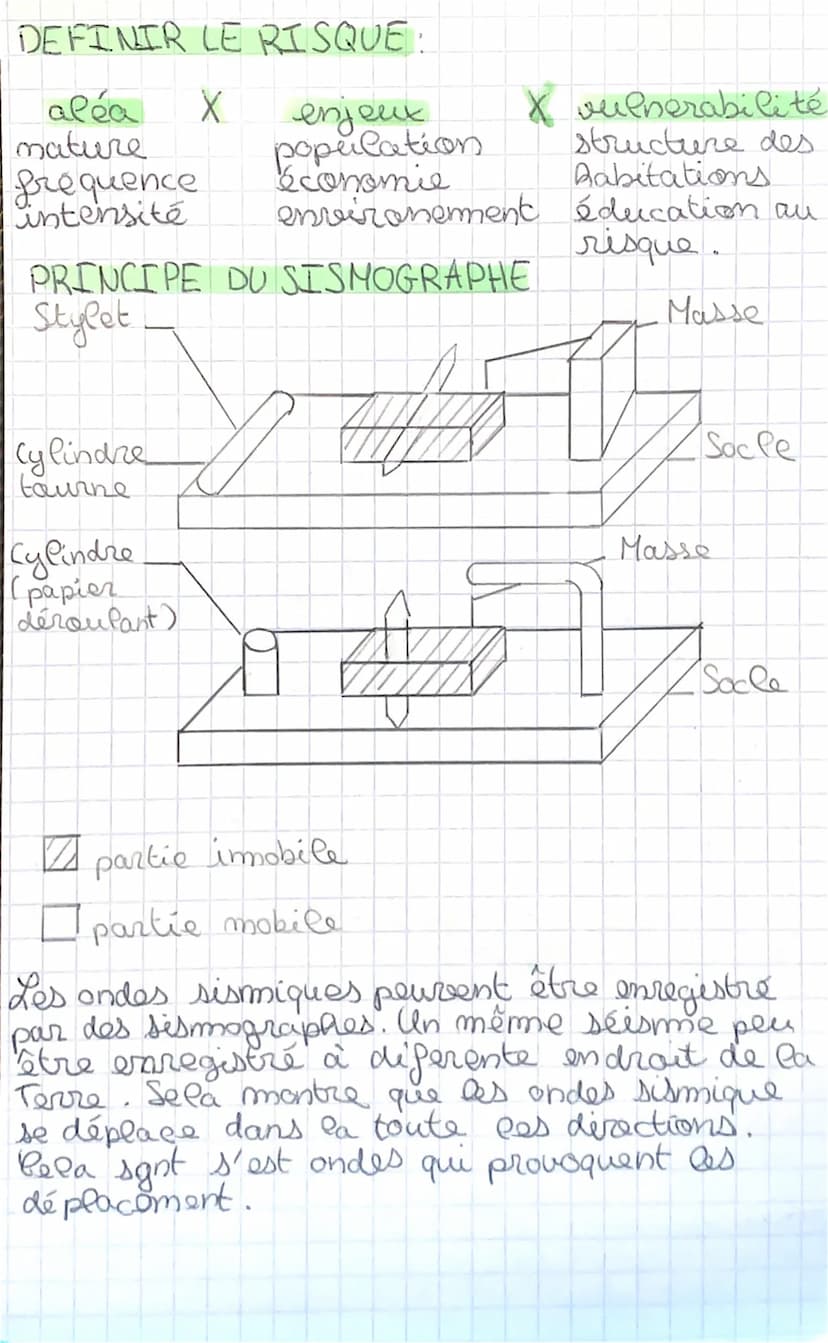 DEFINIR LE RISQUE :
aléa X enjeux X vulnerabilité
nature population structure des
fréquence économie habitations
intensité environement éducation au
risque.
PRINCIPE DU SISMOGRAPHE
Stylet
Masse
Cylindre
tourne
Socle
Cylindre
(papier
déroulant)
Masse
Socle
partie immobile
partie mobile
Les ondes sismiques peuvent être enregistré
par des sismographes. Un même séisme peu
être enregistré à diferente endroit de la
Terre. Sela montre que les ondes sismique
se déplace dans la toute les directions.
Cela sont s'est ondes qui provoquent les
déplacement.